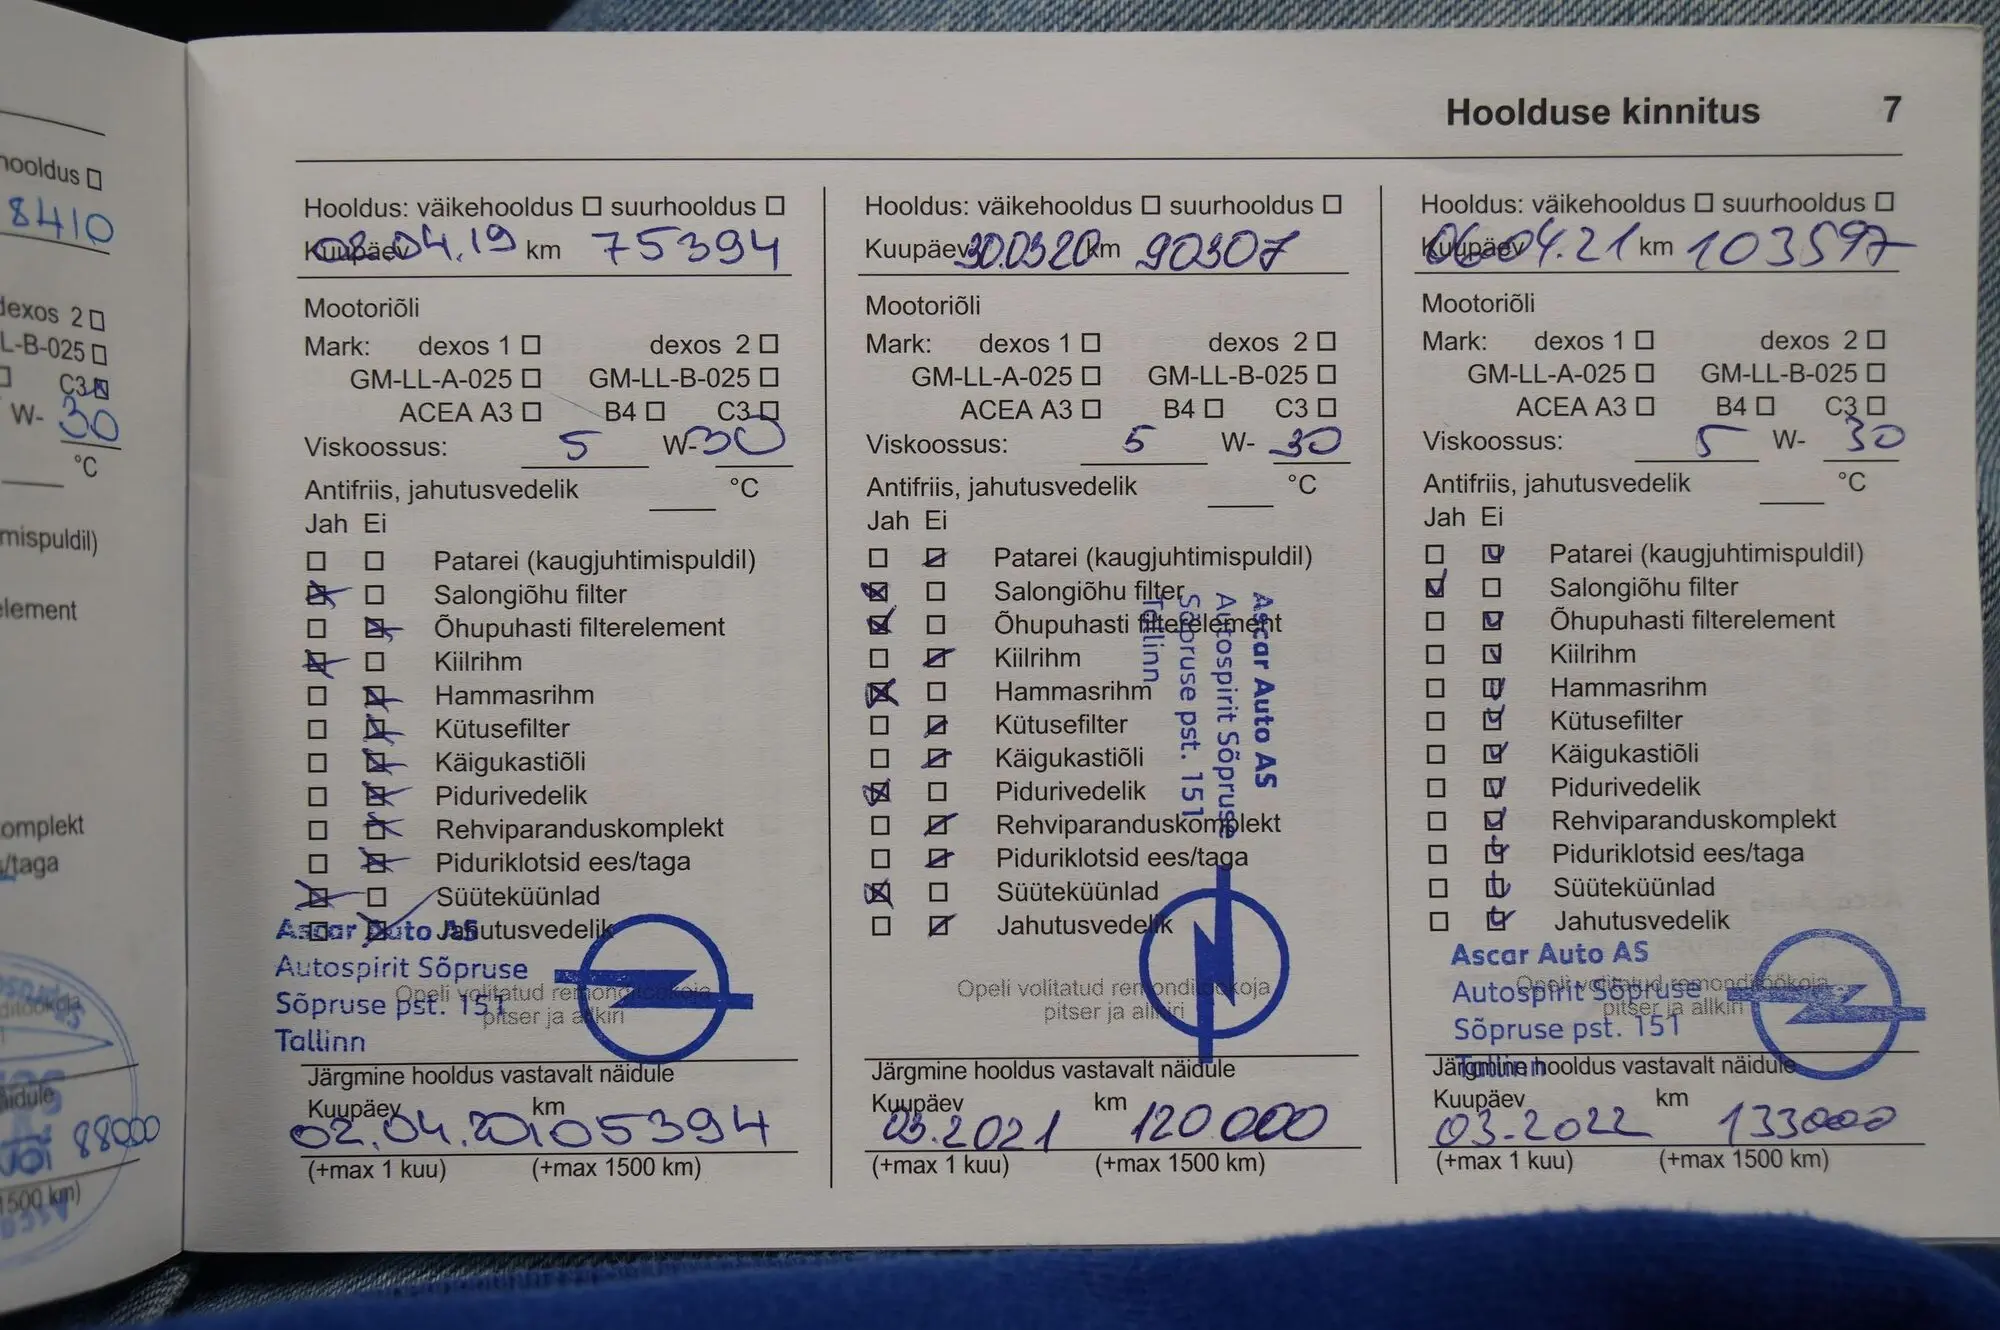 hooldus
8410
dexos 2
L-B-025
C3
W- 30
°C
mispuldil)
element
omplekt
/taga
88000
Hoolduse kinnitus 7
Hooldus: väikehooldus suurhooldus
Kuupäev 02.04.19 km 75394
Mootoriõli
Mark: dexos 1 dexos 2
GM-LL-A-025 GM-LL-B-025
ACEA A3 B4 C3
Viskoossus: 5 W-30
Antifriis, jahutusvedelik °C
Jah Ei
Patarei (kaugjuhtimispuldil)
Salongiõhu filter
Õhupuhasti filterelement
Kiilrihm
Hammasrihm
Kütusefilter
Käigukastiõli
Pidurivedelik
Rehviparanduskomplekt
Piduriklotsid ees/taga
Süüteküünlad
Jahutusvedelik
Ascar Auto AS
Autospirit Sõpruse
Sõpruse pst. 151
Tallinn
Opeli volitatud remonditöökoja
pitser ja allkiri
Järgmine hooldus vastavalt näidule
Kuupäev km
02.04.20 105394
(+max 1 kuu) (+max 1500 km)
Hooldus: väikehooldus suurhooldus
Kuupäev 30.03.20 km 90307
Mootoriõli
Mark: dexos 1 dexos 2
GM-LL-A-025 GM-LL-B-025
ACEA A3 B4 C3
Viskoossus: 5 W- 30
Antifriis, jahutusvedelik °C
Jah Ei
Patarei (kaugjuhtimispuldil)
Salongiõhu filter
Õhupuhasti filterelement
Kiilrihm
Hammasrihm
Kütusefilter
Käigukastiõli
Pidurivedelik
Rehviparanduskomplekt
Piduriklotsid ees/taga
Süüteküünlad
Jahutusvedelik
Ascar Auto AS
Autospirit Sõpruse
Sõpruse pst. 151
Tallinn
Opeli volitatud remonditöökoja
pitser ja allkiri
Järgmine hooldus vastavalt näidule
Kuupäev km
03.2021 120000
(+max 1 kuu) (+max 1500 km)
Hooldus: väikehooldus suurhooldus
Kuupäev 06.04.21 km 103597
Mootoriõli
Mark: dexos 1 dexos 2
GM-LL-A-025 GM-LL-B-025
ACEA A3 B4 C3
Viskoossus: 5 W- 30
Antifriis, jahutusvedelik °C
Jah Ei
Patarei (kaugjuhtimispuldil)
Salongiõhu filter
Õhupuhasti filterelement
Kiilrihm
Hammasrihm
Kütusefilter
Käigukastiõli
Pidurivedelik
Rehviparanduskomplekt
Piduriklotsid ees/taga
Süüteküünlad
Jahutusvedelik
Ascar Auto AS
Autospirit Sõpruse
Sõpruse pst. 151
Tallinn
Opeli volitatud remonditöökoja
pitser ja allkiri
Järgmine hooldus vastavalt näidule
Kuupäev km
03.2022 133000
(+max 1 kuu) (+max 1500 km)